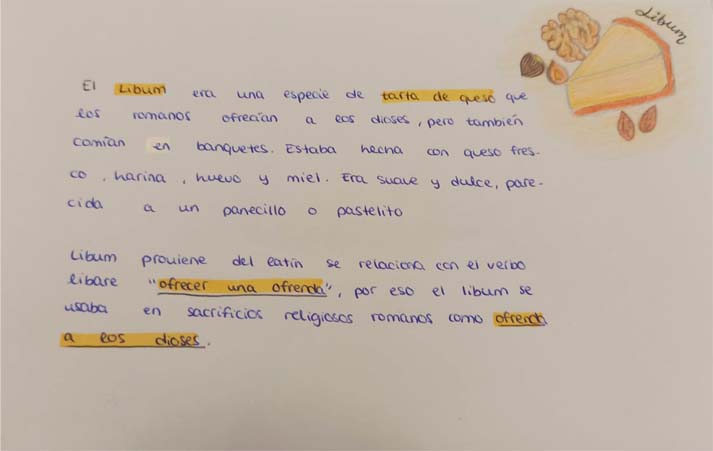 Libum
El Libum era una especie de tarta de queso que
los romanos ofrecían a los dioses, pero también
comían en banquetes. Estaba hecha con queso fres-
co, harina, huevo y miel. Era suave y dulce, pare-
cida a un panecillo o pastelito
Libum proviene del latín se relaciona con el verbo
libare "ofrecer una ofrenda", por eso el libum se
usaba en sacrificios religiosos romanos como ofrenda
a los dioses.